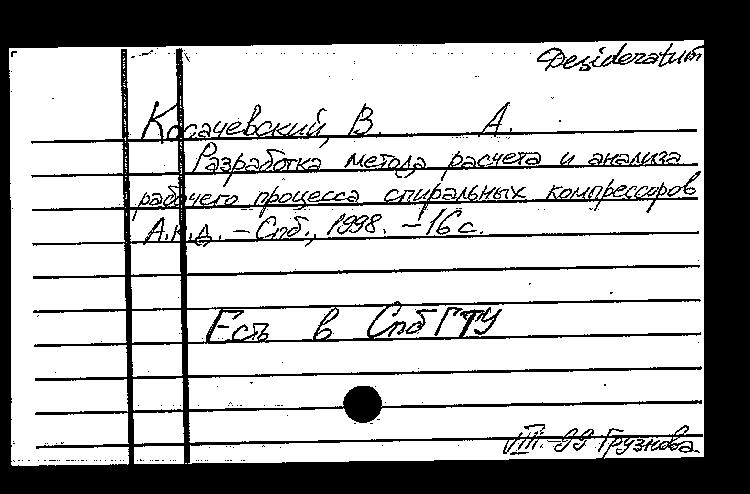 Desideratum
Косачевский, В. А.
Разработка метода расчета и анализа
рабочего процесса спиральных компрессоров
А.к.д. - Спб., 1998. - 16 с.
Есть в СпбГТУ
VIII.-99 Грузнова.